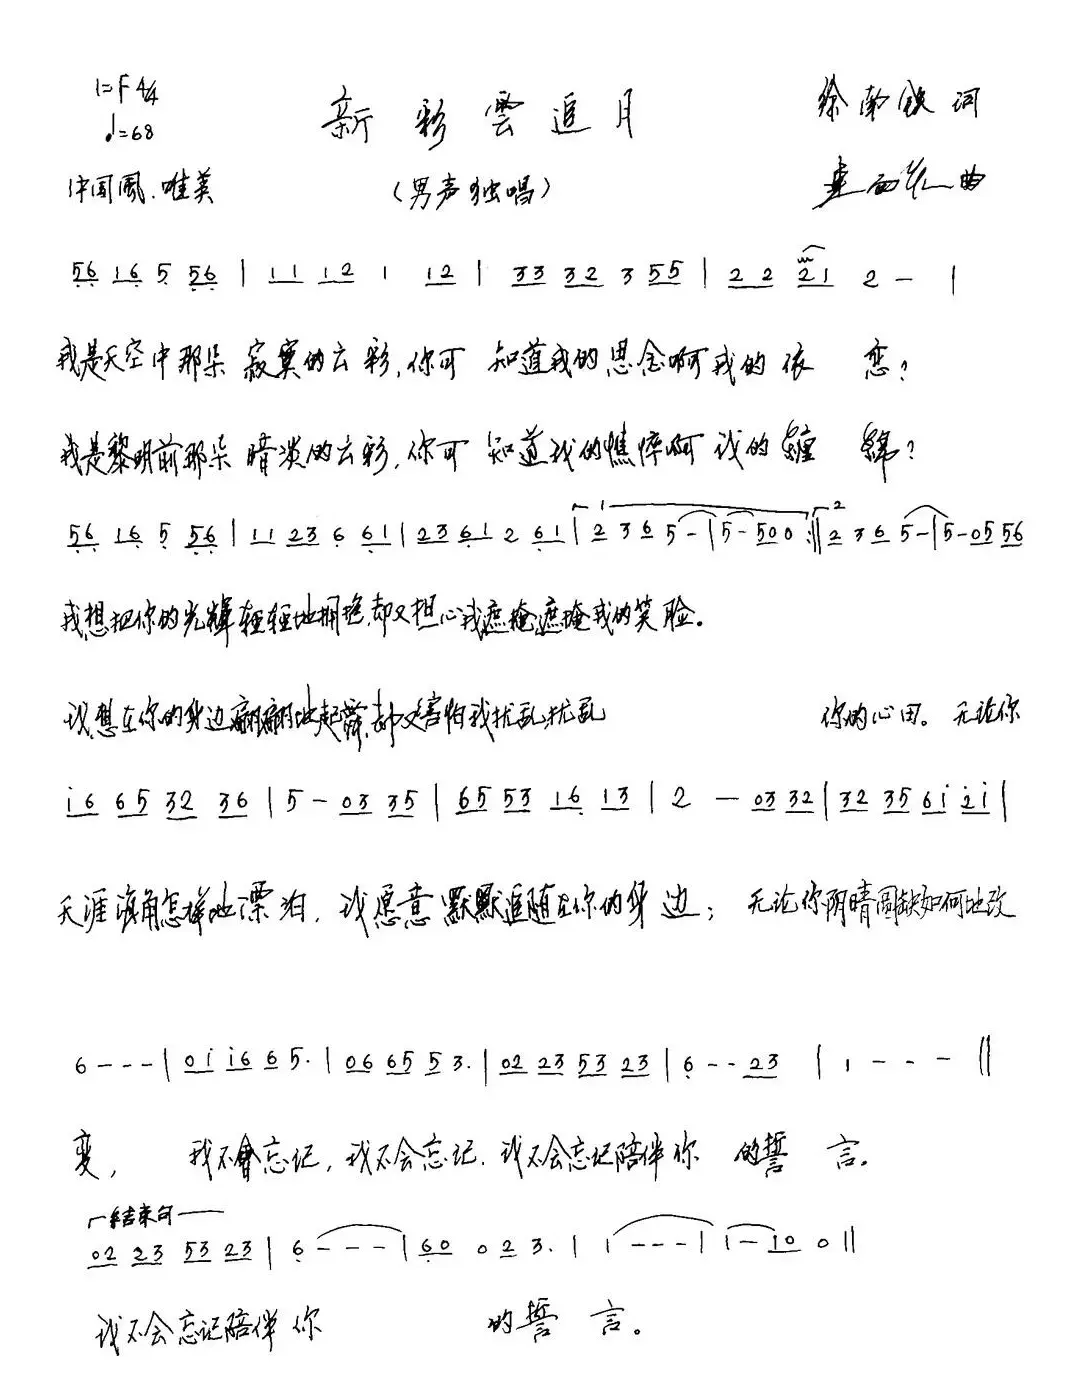 1=F 4/4
♩=68
新彩雲追月
徐南铁 词
中国风.唯美
(男声独唱)
曲
56 16 5 56 | 11 12 1 12 | 33 32 3 55 | 22 21 2 - |
我是天空中那朵 寂寞的云彩,你可 知道我的思念啊我的依 恋?
我是黎明前那朵 暗淡的云彩,你可 知道我的憔悴啊 我的缠 绵?
56 16 5 56 | 11 23 6 61 | 23 61 2 61 | 1 2 3 6 5 - | 5 - 50 0 :|| 2 2 3 6 5 - | 5 - 05 56
我想把你的光辉轻轻地拥抱,却又担心我遮掩遮掩我的笑脸。
我想在你的身边翩翩地起舞,却又害怕我扰乱扰乱 你的心田。无论你
i6 65 32 36 | 5 - 03 35 | 65 53 16 13 | 2 - 03 32 | 32 35 6i 2i |
天涯海角怎样地漂泊,我愿意默默追随在你的身边; 无论你阴晴圆缺如何地改
6 - - - | 0i i6 6 5. | 06 65 5 3. | 02 23 53 23 | 6 - - 23 | 1 - - - ||
变, 我不会忘记,我不会忘记.我不会忘记陪伴你 的誓 言。
结束句
02 23 53 23 | 6 - - - | 60 0 2 3. | i - - - | i - i0 0 ||
我不会忘记陪伴 你 的誓 言。